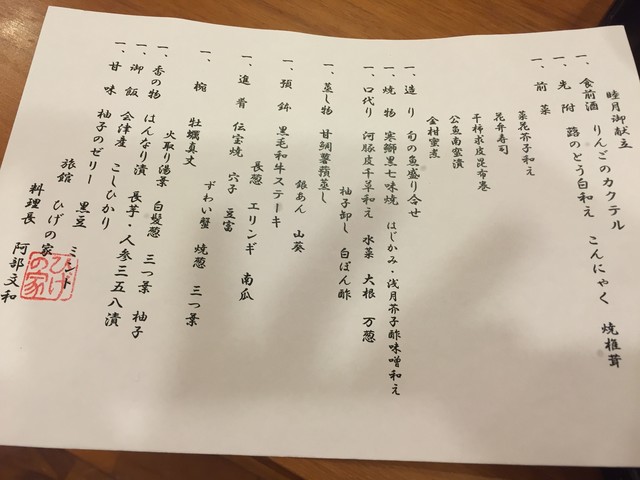 睦月御献立
一、食前酒 りんごのカクテル
一、先附 蕗のとう白和え こんにゃく 焼椎茸
一、前菜 菜花芥子和え
花弁寿司
干柿求皮昆布巻
公魚南蛮漬
金柑蜜煮
一、造り 旬の魚盛り合せ
一、焼物 寒鰤黒七味焼 はじかみ・浅月芥子酢味噌和え
一、口代り 河豚皮千草和え 水菜 大根 万葱
柚子卸し 白ぽん酢
一、蒸し物 甘鯛薯蕷蒸し
銀あん 山葵
一、預鉢 黒毛和牛ステーキ
長葱 エリンギ 南瓜
一、進肴 伝宝焼 穴子 豆富
ずわい蟹 焼葱 三つ葉
一、椀 牡蠣真丈
火取り湯葉 白髪葱 三つ葉 柚子
一、香の物 はんなり漬 長芋・人参三五八漬
一、御飯 会津産 こしひかり
一、甘味 柚子のゼリー 黒豆 ミント
旅館 ひげの家
料理長 阿部文和
ひげの家